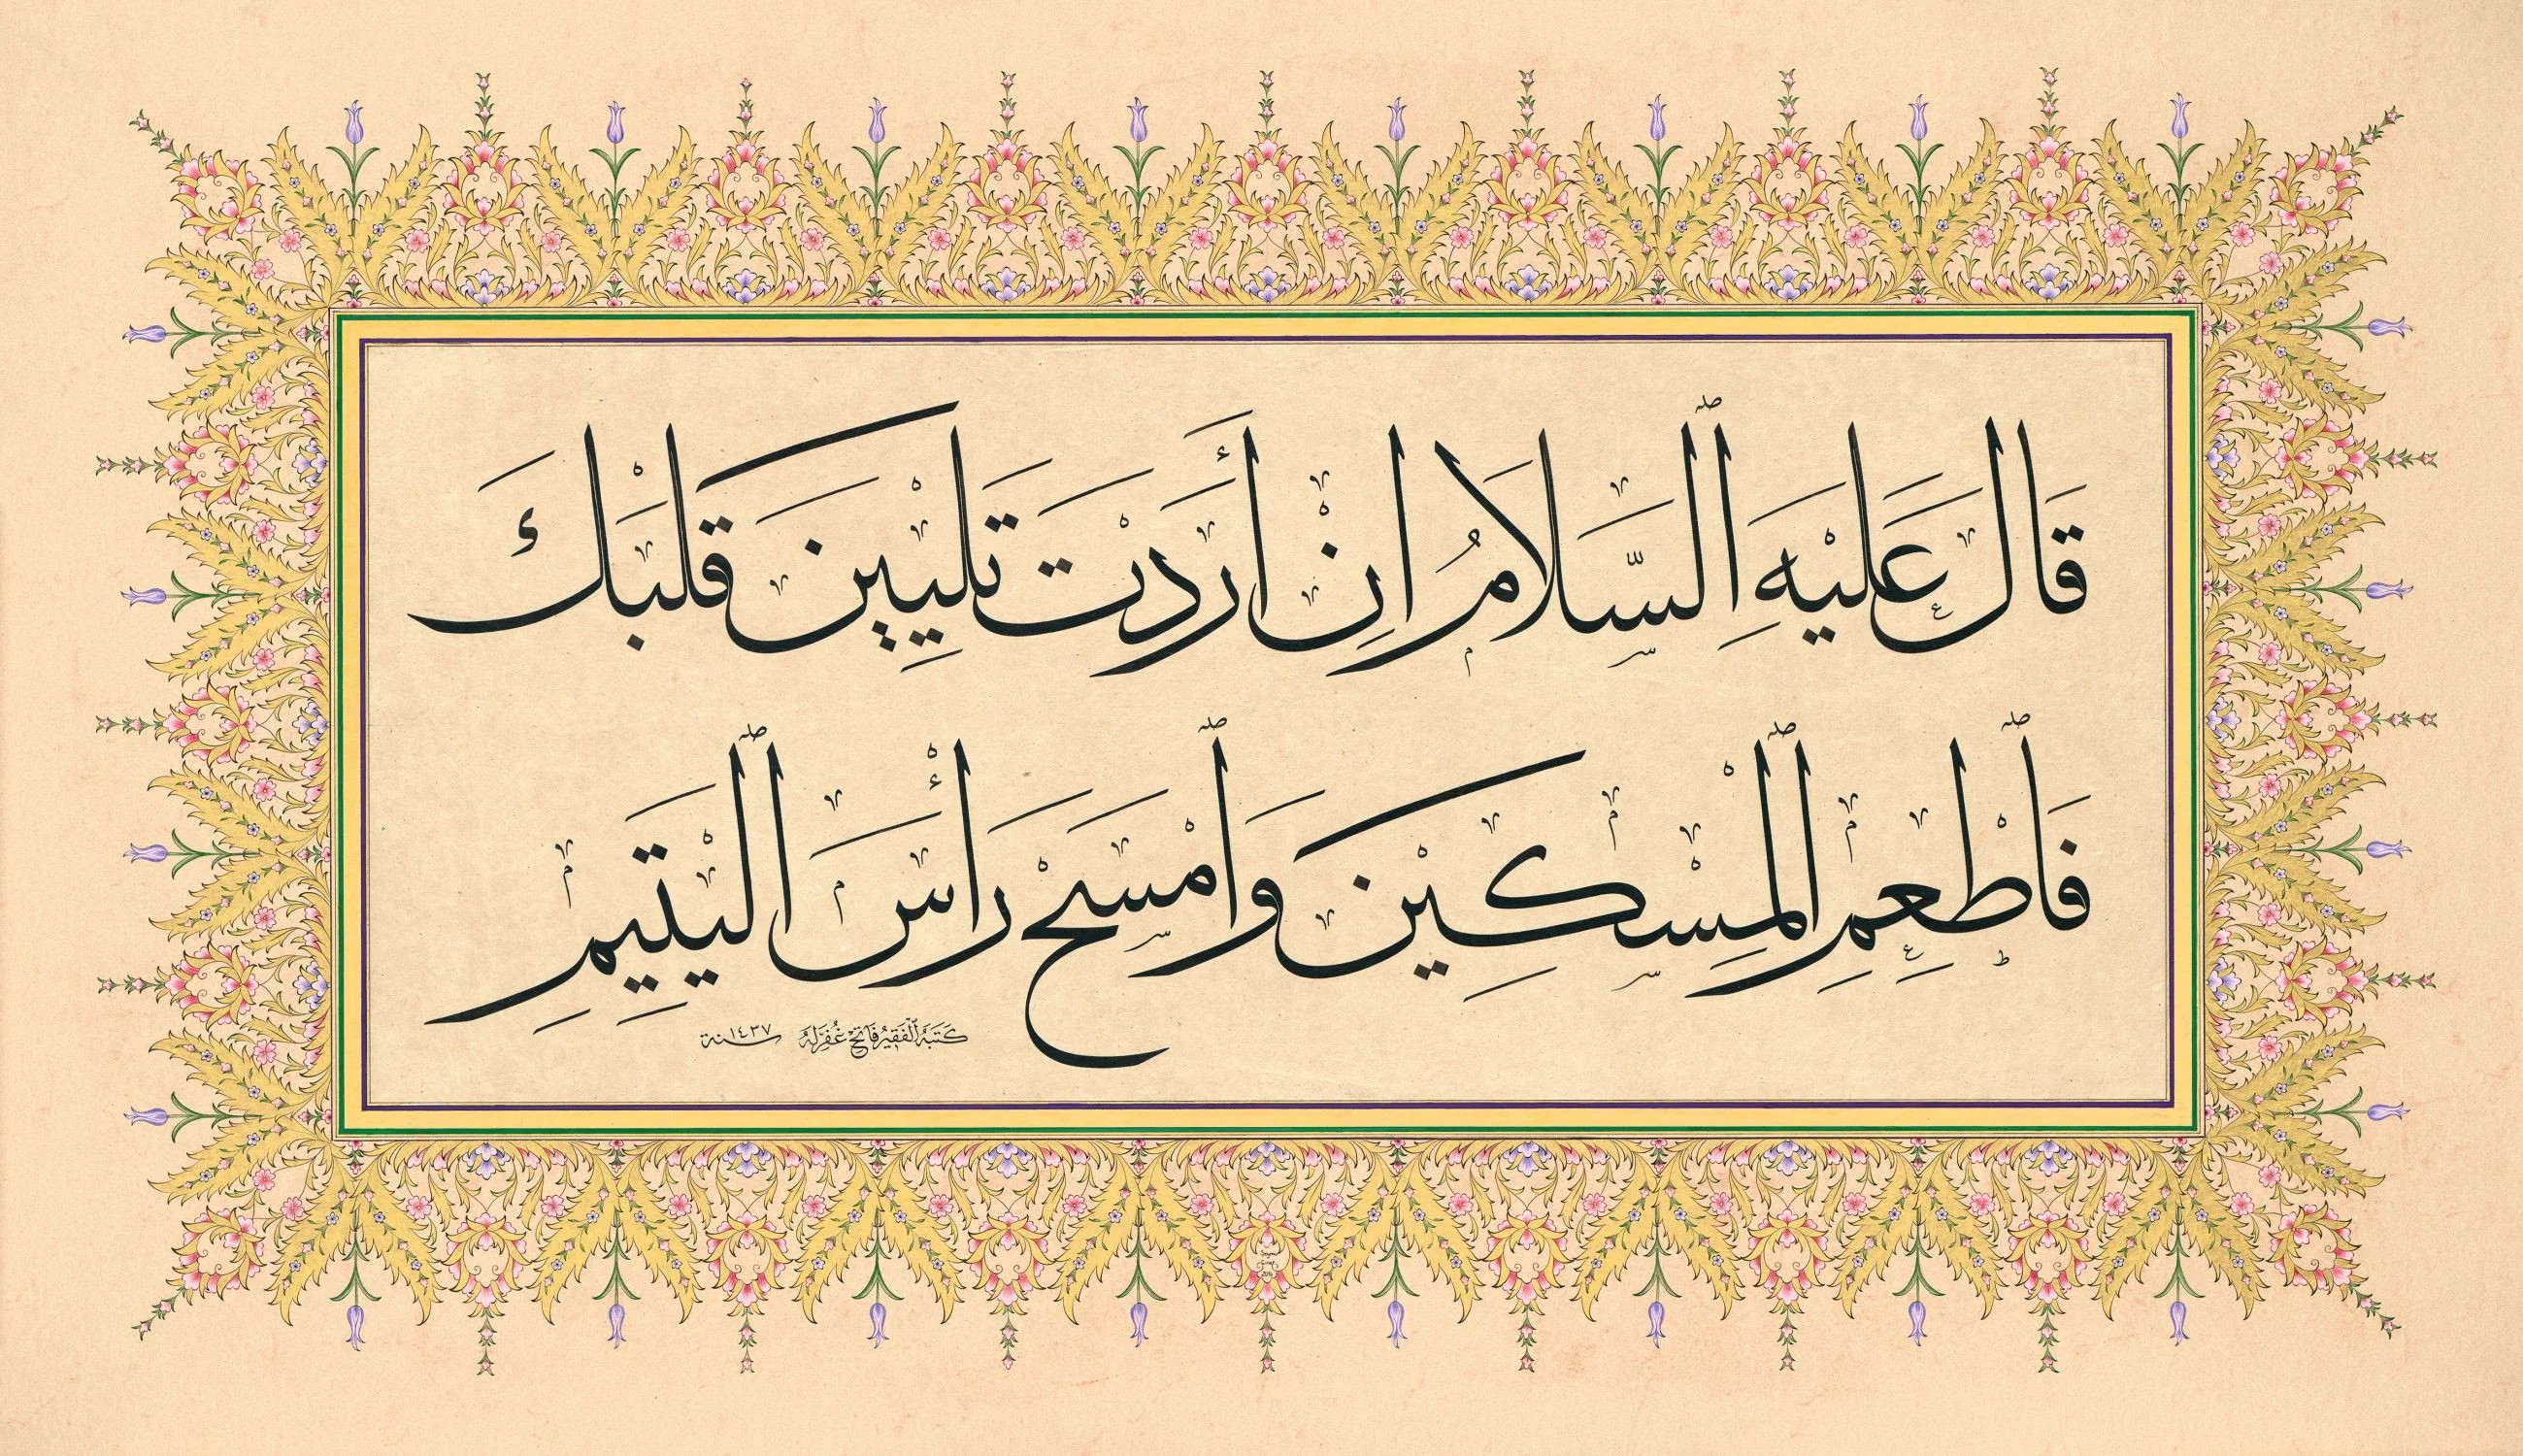 قَالَ عَلَيْهِ ٱلسَّلَامُ اِنْ أَرَدْتَ تَلْيِينَ قَلْبَكَ
فَٱطْعِمِ ٱلْمِسْكِينَ وَٱمْسَحْ رَأْسَ ٱلْيَتِيمِ
كَتَبَهُ ٱلْفَقِيرُ فَاتِحْ غُفِرَلَهُ سنة ١٤٣٧